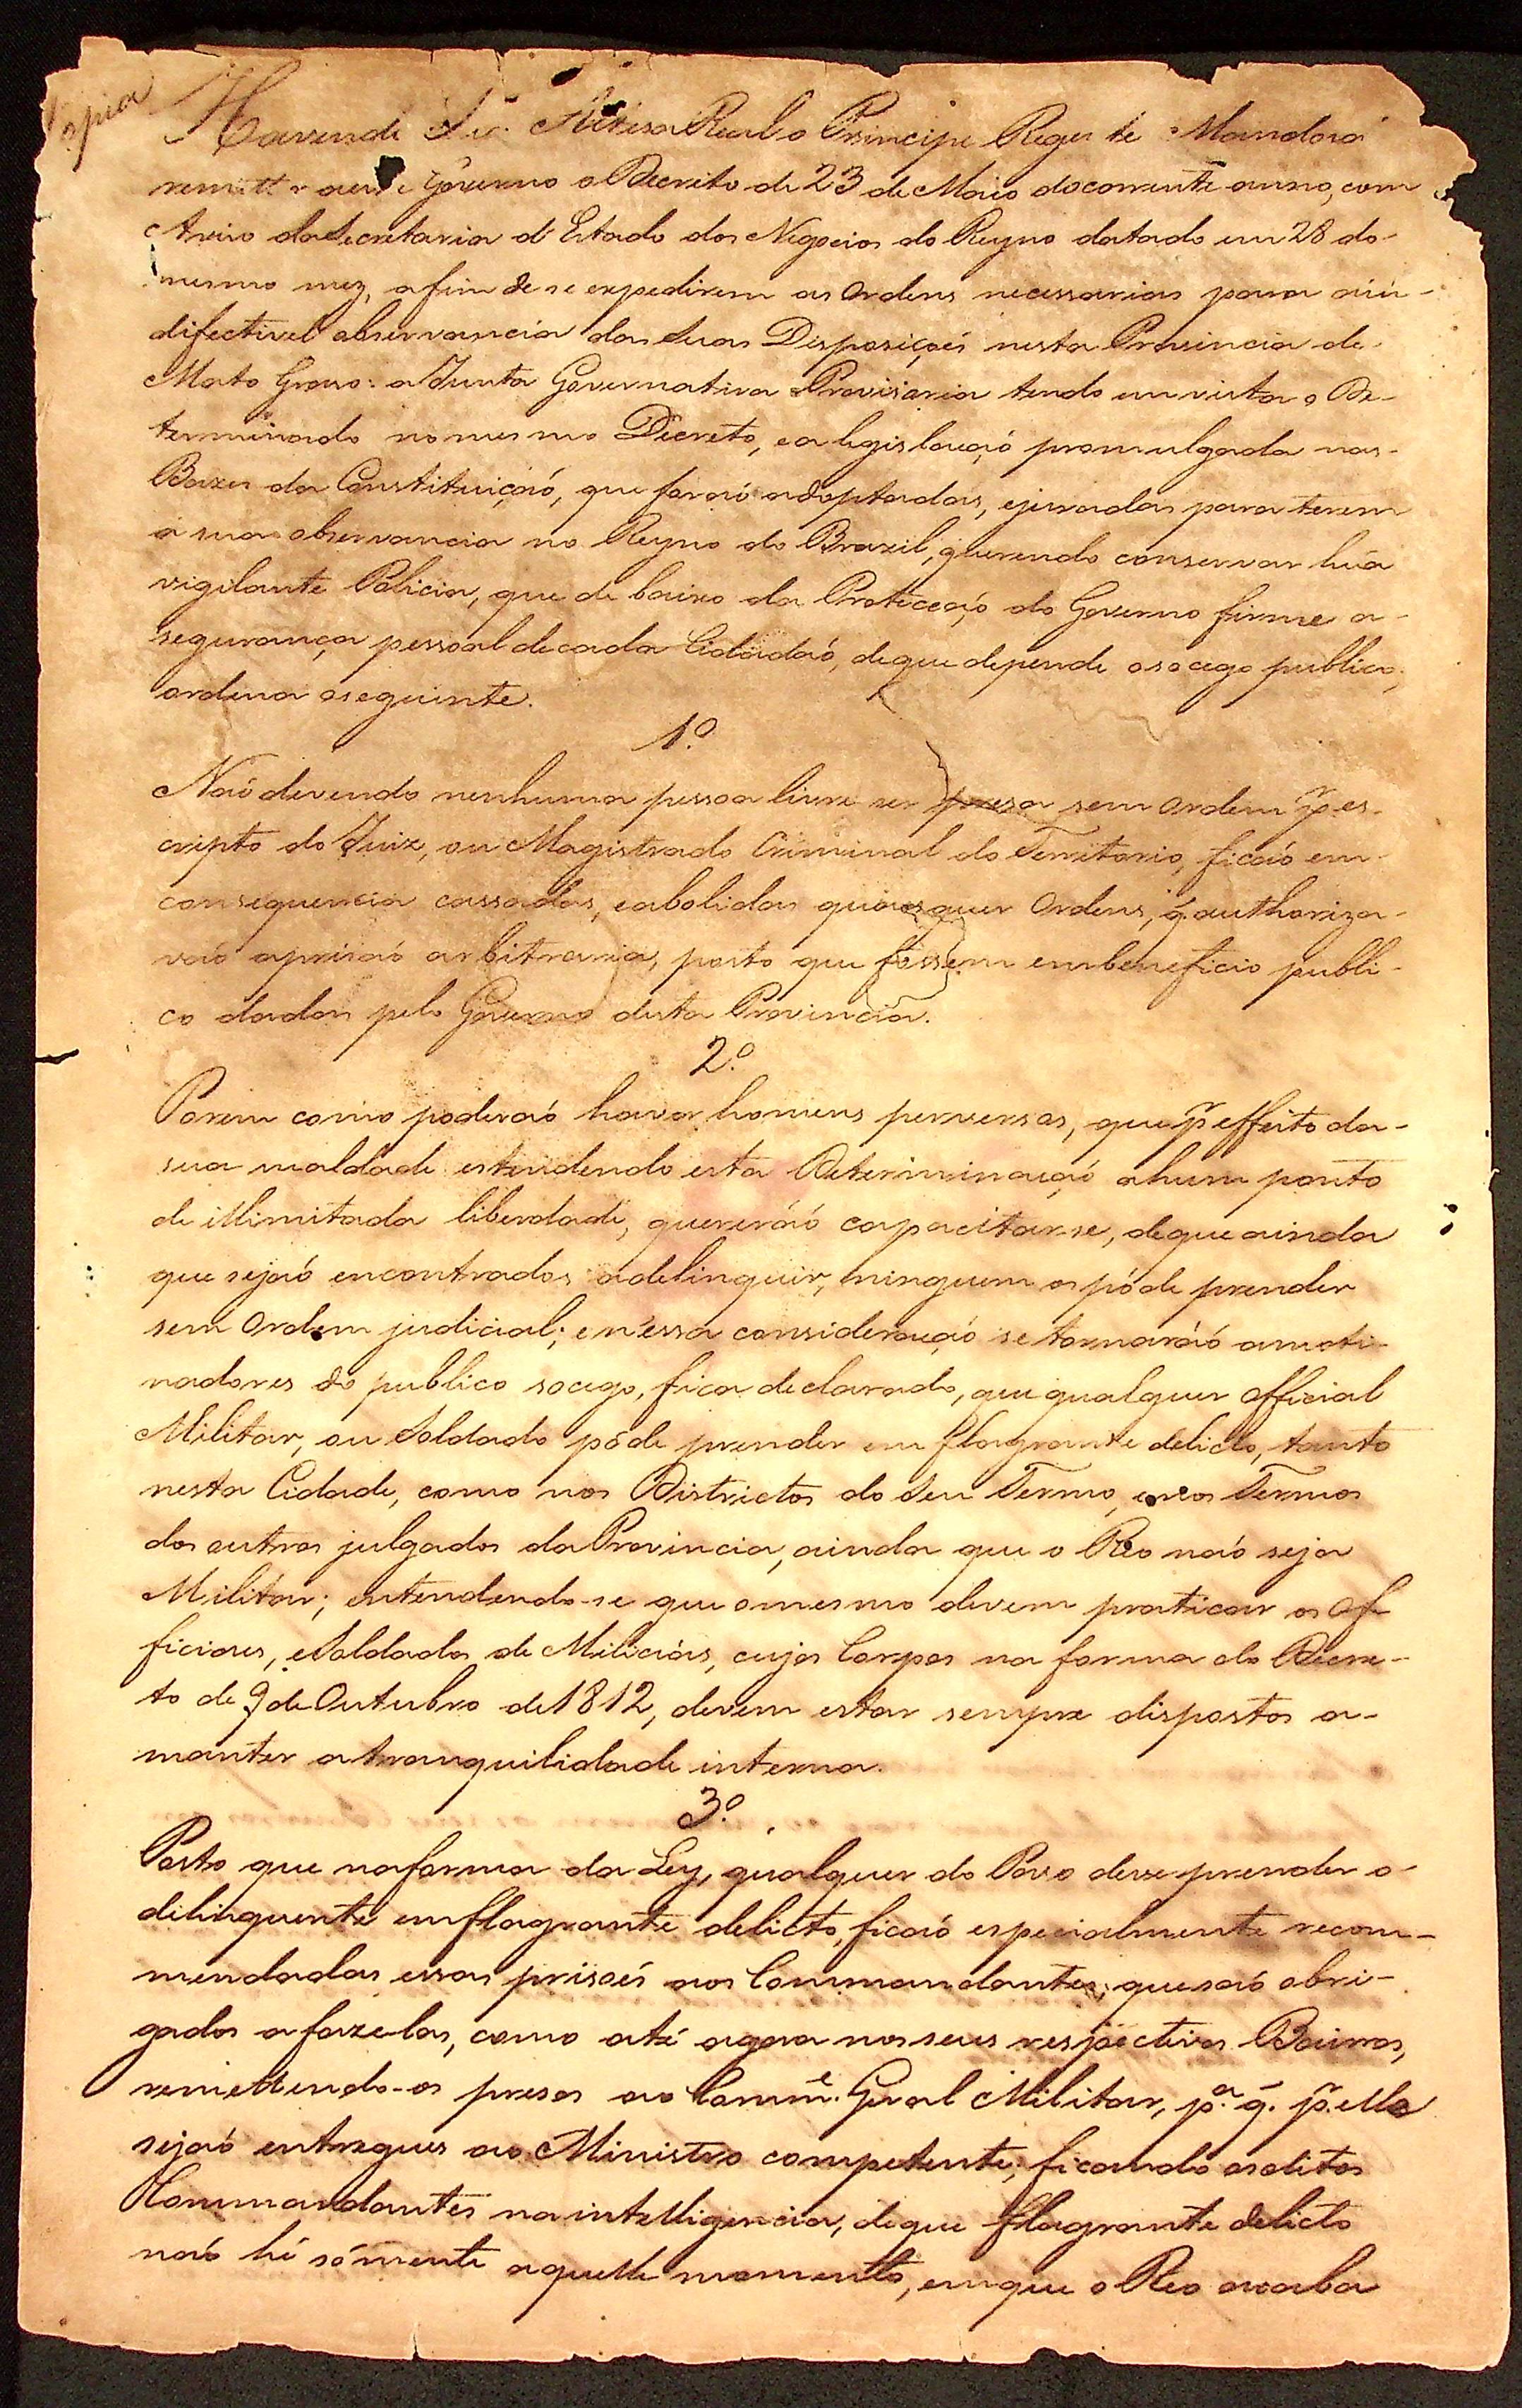 Copia
Havendo Sua Alteza Real o Principe Regente Mandado
remetter a este Governo o Decreto de 23 de Maio do corrente anno, com
Aviso da Secretaria d'Estado dos Negocios do Reyno datado em 28 do
mesmo mez, a fim de se expedirem as Ordens necessarias para a in-
difectivel observancia das suas Disposiçoẽs nesta Provincia de
Mato Groso: a Junta Governativa Provisoria tendo em vista o De-
terminado no mesmo Decreto, e a legislaçaõ promulgada nas
Bazes da Constituiçaõ, que foraõ adoptadas, e juradas para terem
a sua observancia no Reyno do Brazil, querendo conservar huã
vigilante Policia, que de baixo da Protecçaõ do Governo firme a
segurança pessoal de cada Cidadaõ, de que depende o socego publico,
ordena o seguinte.
1º
Naõ devendo nenhuma pessoa livre ser presa sem ordem pr es-
cripto do Juiz, ou Magistrado Criminal do Territorio, ficaõ em
consequencia cassadas, e abolidas quaesquer Ordens, q̃ authoriza-
vaõ a prisaõ arbitraria, posto que fossem em beneficio publi-
co dadas pelo Governo desta Provincia.
2º
Porem como poderaõ haver homens perversos, que pr effeito da
sua maldade estendendo esta Determinaçaõ a hum ponto
de illimitada liberdade, quereráõ capacitar-se, de que ainda
que sejaõ encontrados a delinquir, ninguem os póde prender
sem Ordem judicial; e n'essa consideraçaõ se tornaráõ amoti-
nadores do publico socego, fica declarado, que qualquer Official
Militar, ou Soldado póde prender em flagrante delicto, tanto
nesta Cidade, como nos Districtos do seu Termo, e nos Termos
dos outros julgados da Provincia, ainda que o Reo naõ seja
Militar; entendendo-se que o mesmo devem praticar os Of-
ficiaes, e Soldados de Milicias, cujos Corpos na forma do Decre-
to de 9 de Outubro de 1812, devem estar sempre dispostos a
manter a tranquilidade interna.
3º
Posto que na forma da Ley, qualquer do Povo deve prender o
dilinquente em flagrante delicto, ficaõ especialmente recom-
mendadas essas prisoẽs aos Commandantes, que saõ obri-
gados a fazelas, como até agora nos seus respectivos Bairros,
remettendo-os presos ao Comme. Geral Militar, pa. q̃. pr. elle
sejaõ entregues ao Ministro competente; ficando os ditos
Commandantes na intelligencia, de que flagrante delicto
naõ hé sómente aquelle momento, em que o Reo acaba